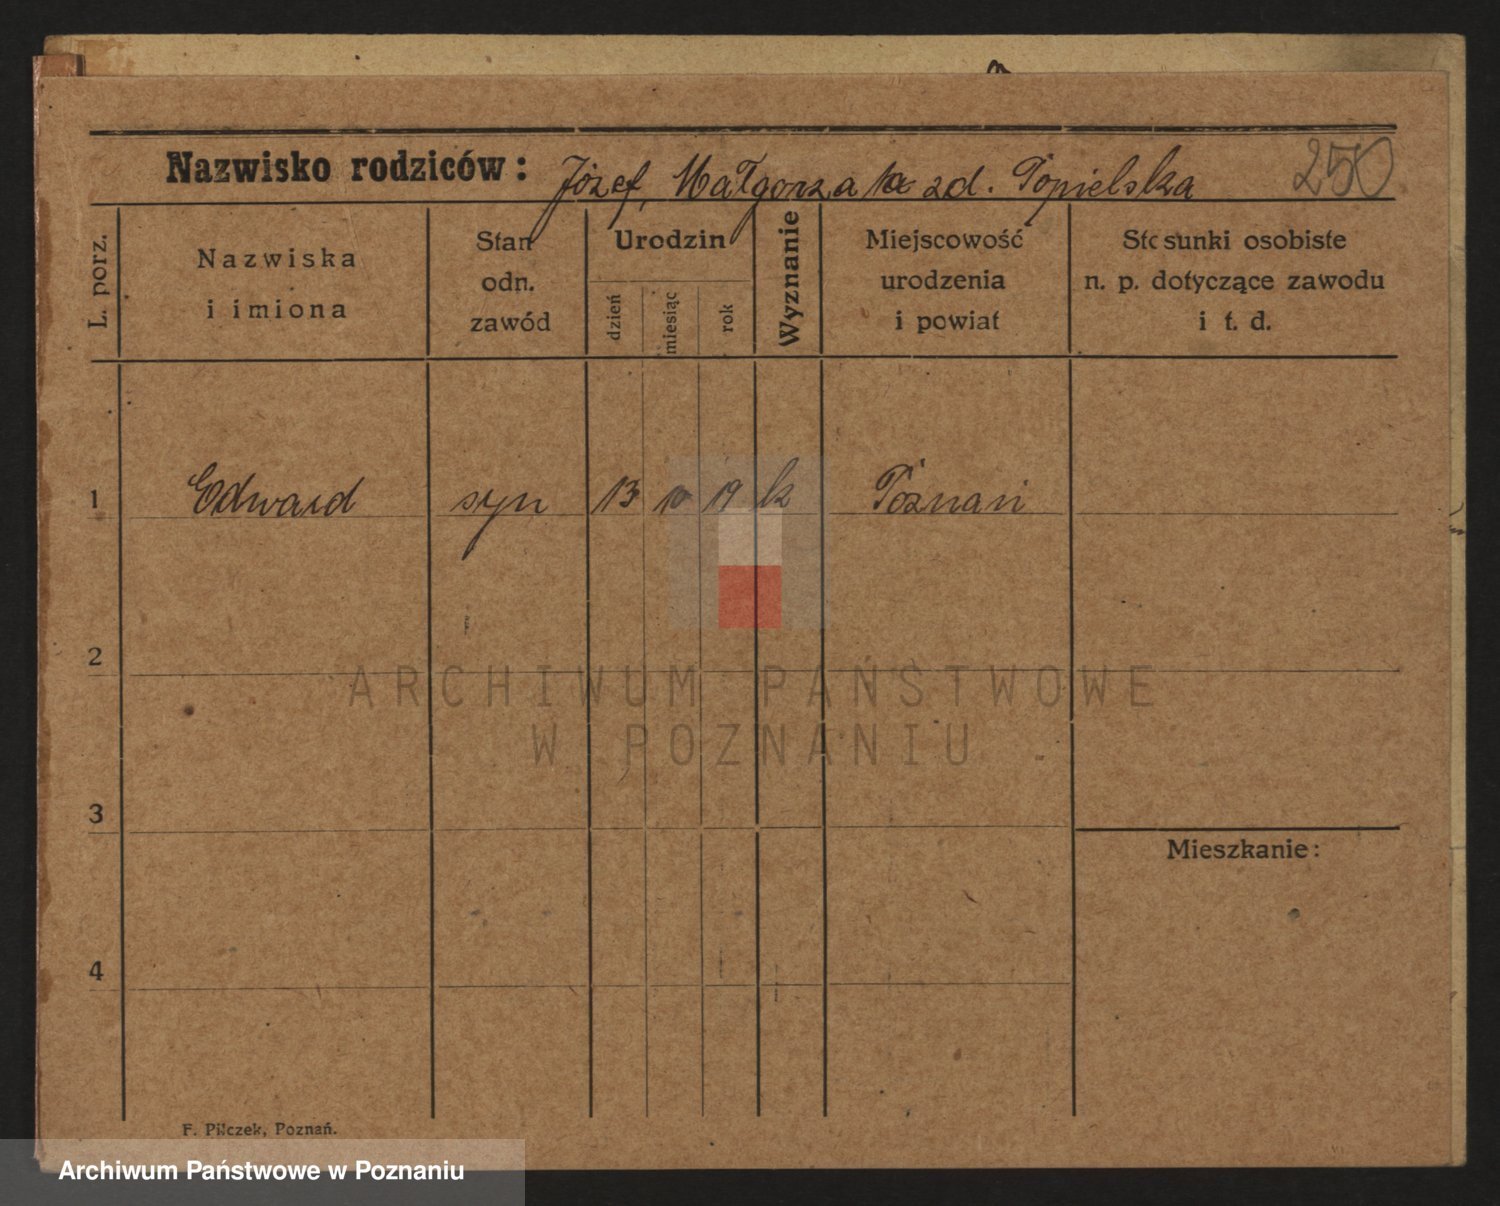 Nazwisko rodziców: Józef, Małgorzata zd. Popielska 250
L. porz.
Nazwiska
i imiona
Stan
odn.
zawód
Urodzin
dzień
miesiąc
rok
Wyznanie
Miejscowość
urodzenia
i powiat
Stosunki osobiste
n. p. dotyczące zawodu
i t. d.
1 Edward syn 13 10 19 k Poznań
2
ARCHIWUM PAŃSTWOWE
W POZNANIU
3
Mieszkanie:
4
F. Pilczek, Poznań.
Archiwum Państwowe w Poznaniu